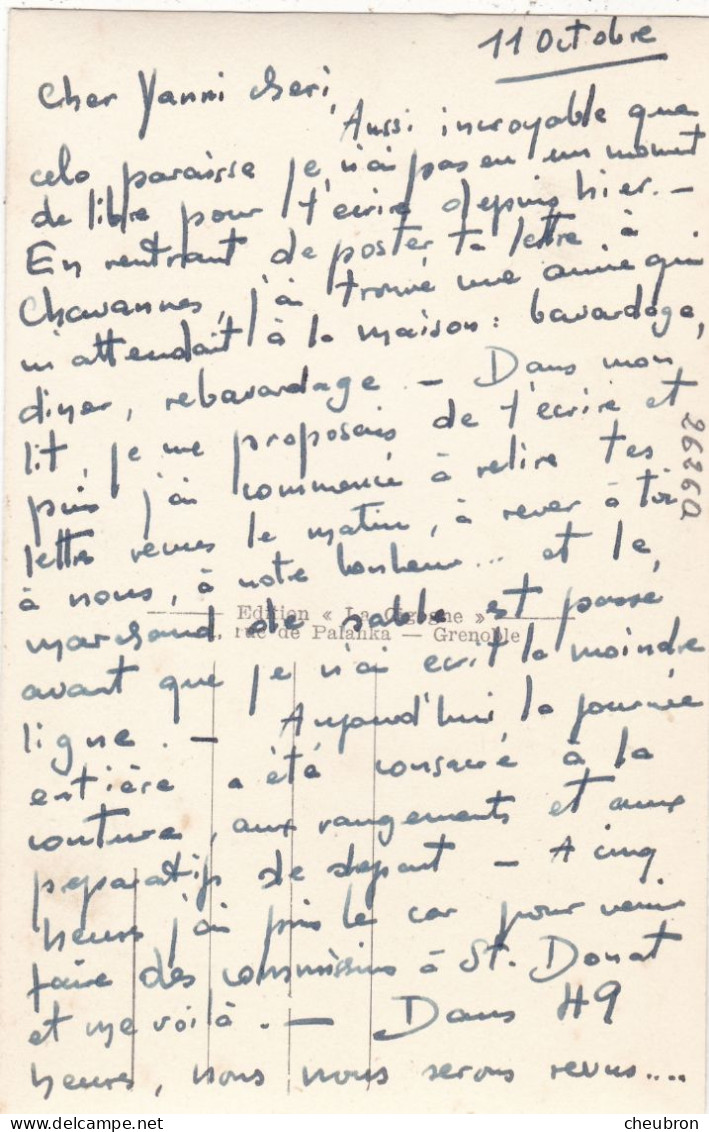 11 Octobre
Cher Yanni cheri,
Aussi incroyable que
cela paraisse je n'ai pas eu un moment
de libre pour t'écrire depuis hier. —
En rentrant de poster ta lettre à
Chavannes, j'ai trouvé une amie qui
m'attendait à la maison : bavardage,
diner, rebavardage. — Dans mon
lit, je me proposais de t'écrire et
puis j'ai commencé à relire tes
lettres reçues le matin, à rever à toi
à nous, à notre bonheur... et le
marchand de sable est passé
avant que je n'ai ecrit la moindre
ligne. — Aujourd'hui la journée
entière a été consacré à la
couture, aux rangements et aux
preparatifs de depart — A cinq
heures j'ai pris le car pour venir
faire des commissions à St. Donat
et me voilà. — Dans 49
heures, nous nous serons revus....
26260
Edition « La Cigogne »
, rue de Palanka — Grenoble
cheubron